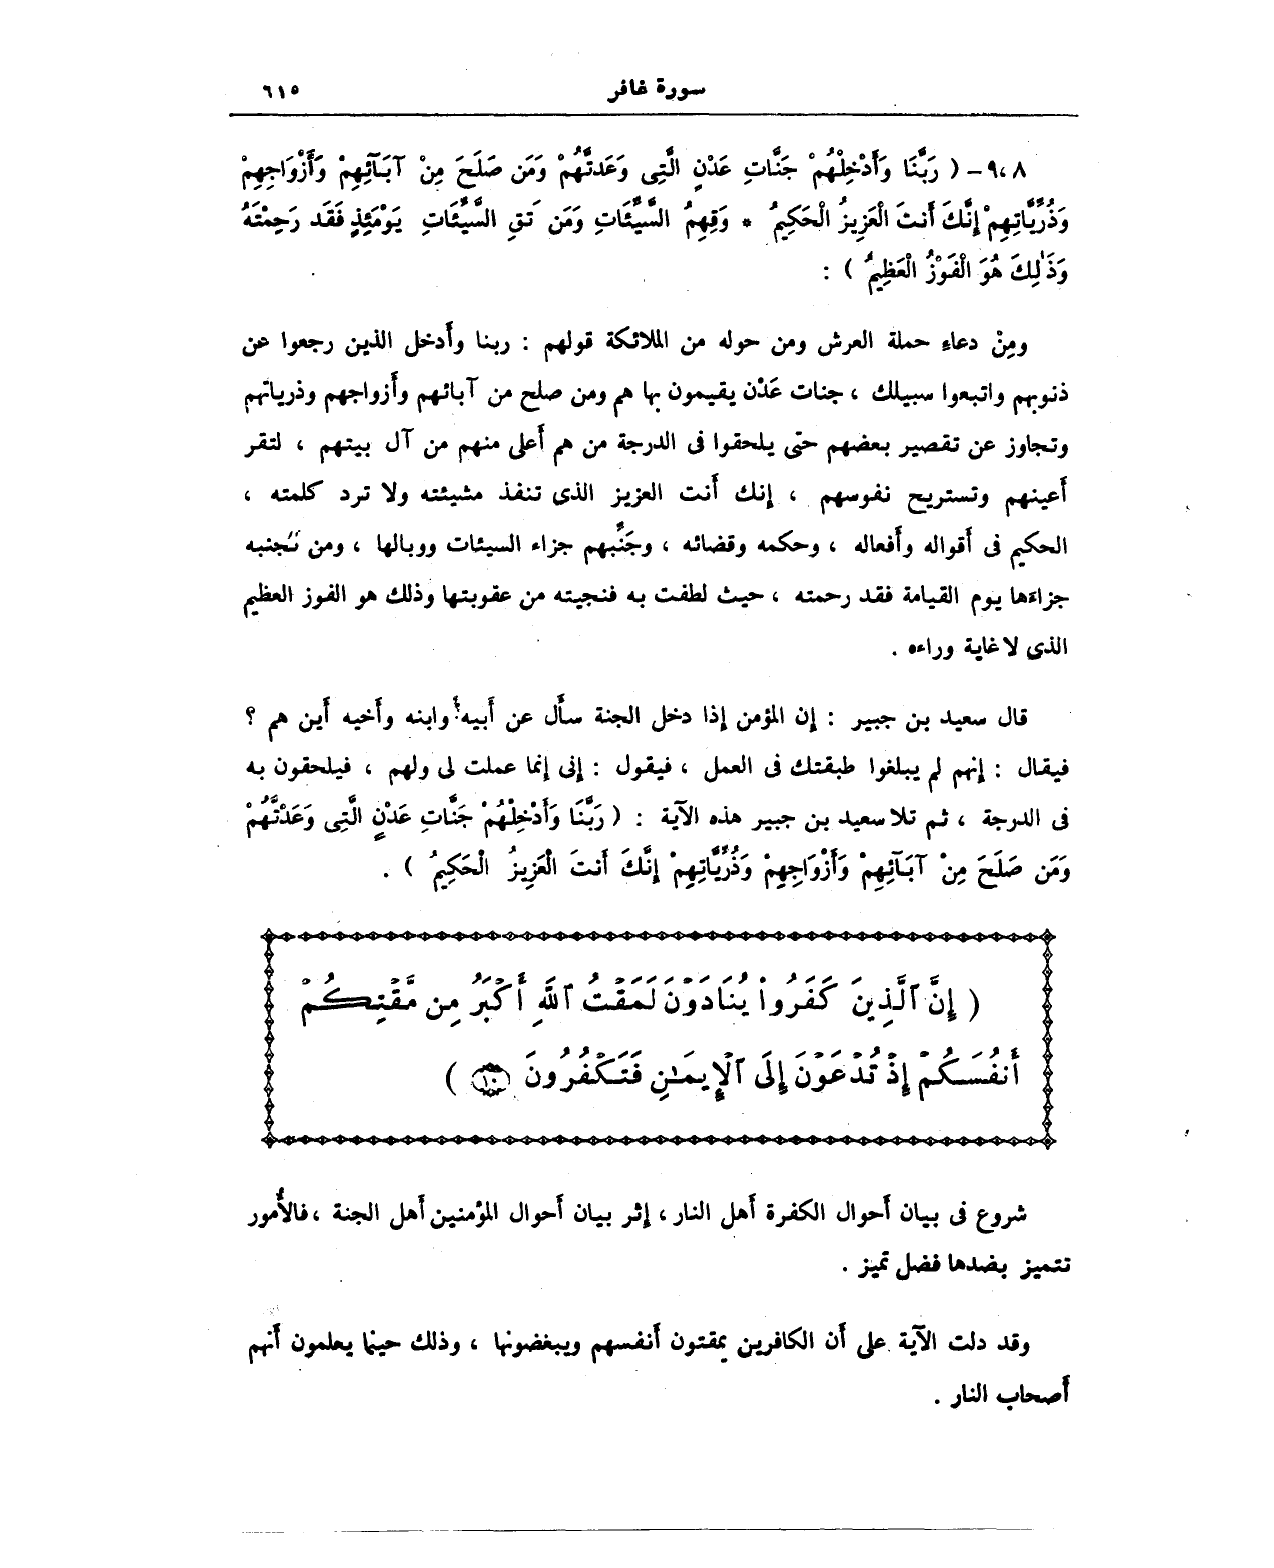 سورة غافر
٦١٥
٩،٨ - ( رَبَّنَا وَأَدْخِلْهُمْ جَنَّاتِ عَدْنٍ الَّتِى وَعَدتَّهُمْ وَمَن صَلَحَ مِنْ آبَآئِهِمْ وَأَزْوَاجِهِمْ
وَذُرِّيَّاتِهِمْ إِنَّكَ أَنتَ الْعَزِيزُ الْحَكِيمُ * وَقِهِمُ السَّيِّئَاتِ وَمَن تَقِ السَّيِّئَاتِ يَوْمَئِذٍ فَقَد رَحِمْتَهُ
وَذَٰلِكَ هُوَ الْفَوْزُ الْعَظِيمُ ) :
ومِنْ دعاءِ حملة العرش ومن حوله من الملائكة قولهم : ربنا وأَدخل الذين رجعوا عن
ذنوبهم واتبعوا سبيلك ، جنات عَدْن يقيمون بها هم ومن صلح من آبائهم وأَزواجهم وذرياتهم
وتجاوز عن تقصير بعضهم حتى يلحقوا فى الدرجة من هم أَعلى منهم من آل بيتهم ، لتقر
أَعينهم وتستريح نفوسهم ، إنك أَنت العزيز الذى تنفذ مشيئته ولا ترد كلمته ،
الحكيم فى أَقواله وأَفعاله ، وحكمه وقضائه ، وجَنِّبهم جزاء السيئات ووبالها ، ومن تُجنبه
جزاءَها يوم القيامة فقد رحمته ، حيث لطفت به فنجيته من عقوبتها وذلك هو الفوز العظيم
الذى لا غاية وراءه .
قال سعيد بن جبير : إن المؤمن إذا دخل الجنة سأَل عن أَبيه وابنه وأَخيه أَين هم ؟
فيقال : إنهم لم يبلغوا طبقتك فى العمل ، فيقول : إنى إنما عملت لى ولهم ، فيلحقون به
فى الدرجة ، ثم تلا سعيد بن جبير هذه الآية : ( رَبَّنَا وَأَدْخِلْهُمْ جَنَّاتِ عَدْنٍ الَّتِى وَعَدْتَّهُمْ
وَمَن صَلَحَ مِنْ آبَآئِهِمْ وَأَزْوَاجِهِمْ وَذُرِّيَّاتِهِمْ إِنَّكَ أَنتَ الْعَزِيزُ الْحَكِيمُ ) .
( إِنَّ ٱلَّذِينَ كَفَرُواْ يُنَادَوْنَ لَمَقْتُ ٱللَّهِ أَكْبَرُ مِن مَّقْتِكُمْ
أَنفُسَكُمْ إِذْ تُدْعَوْنَ إِلَى ٱلْإِيمَـٰنِ فَتَكْفُرُونَ ١٠ )
شروع فى بيان أَحوال الكفرة أَهل النار ، إثر بيان أَحوال المؤمنين أَهل الجنة ، فالأُمور
تتميز بضدها فضل تميز .
وقد دلت الآية على أَن الكافرين يمقتون أَنفسهم ويبغضونها ، وذلك حينما يعلمون أَنهم
أَصحاب النار .